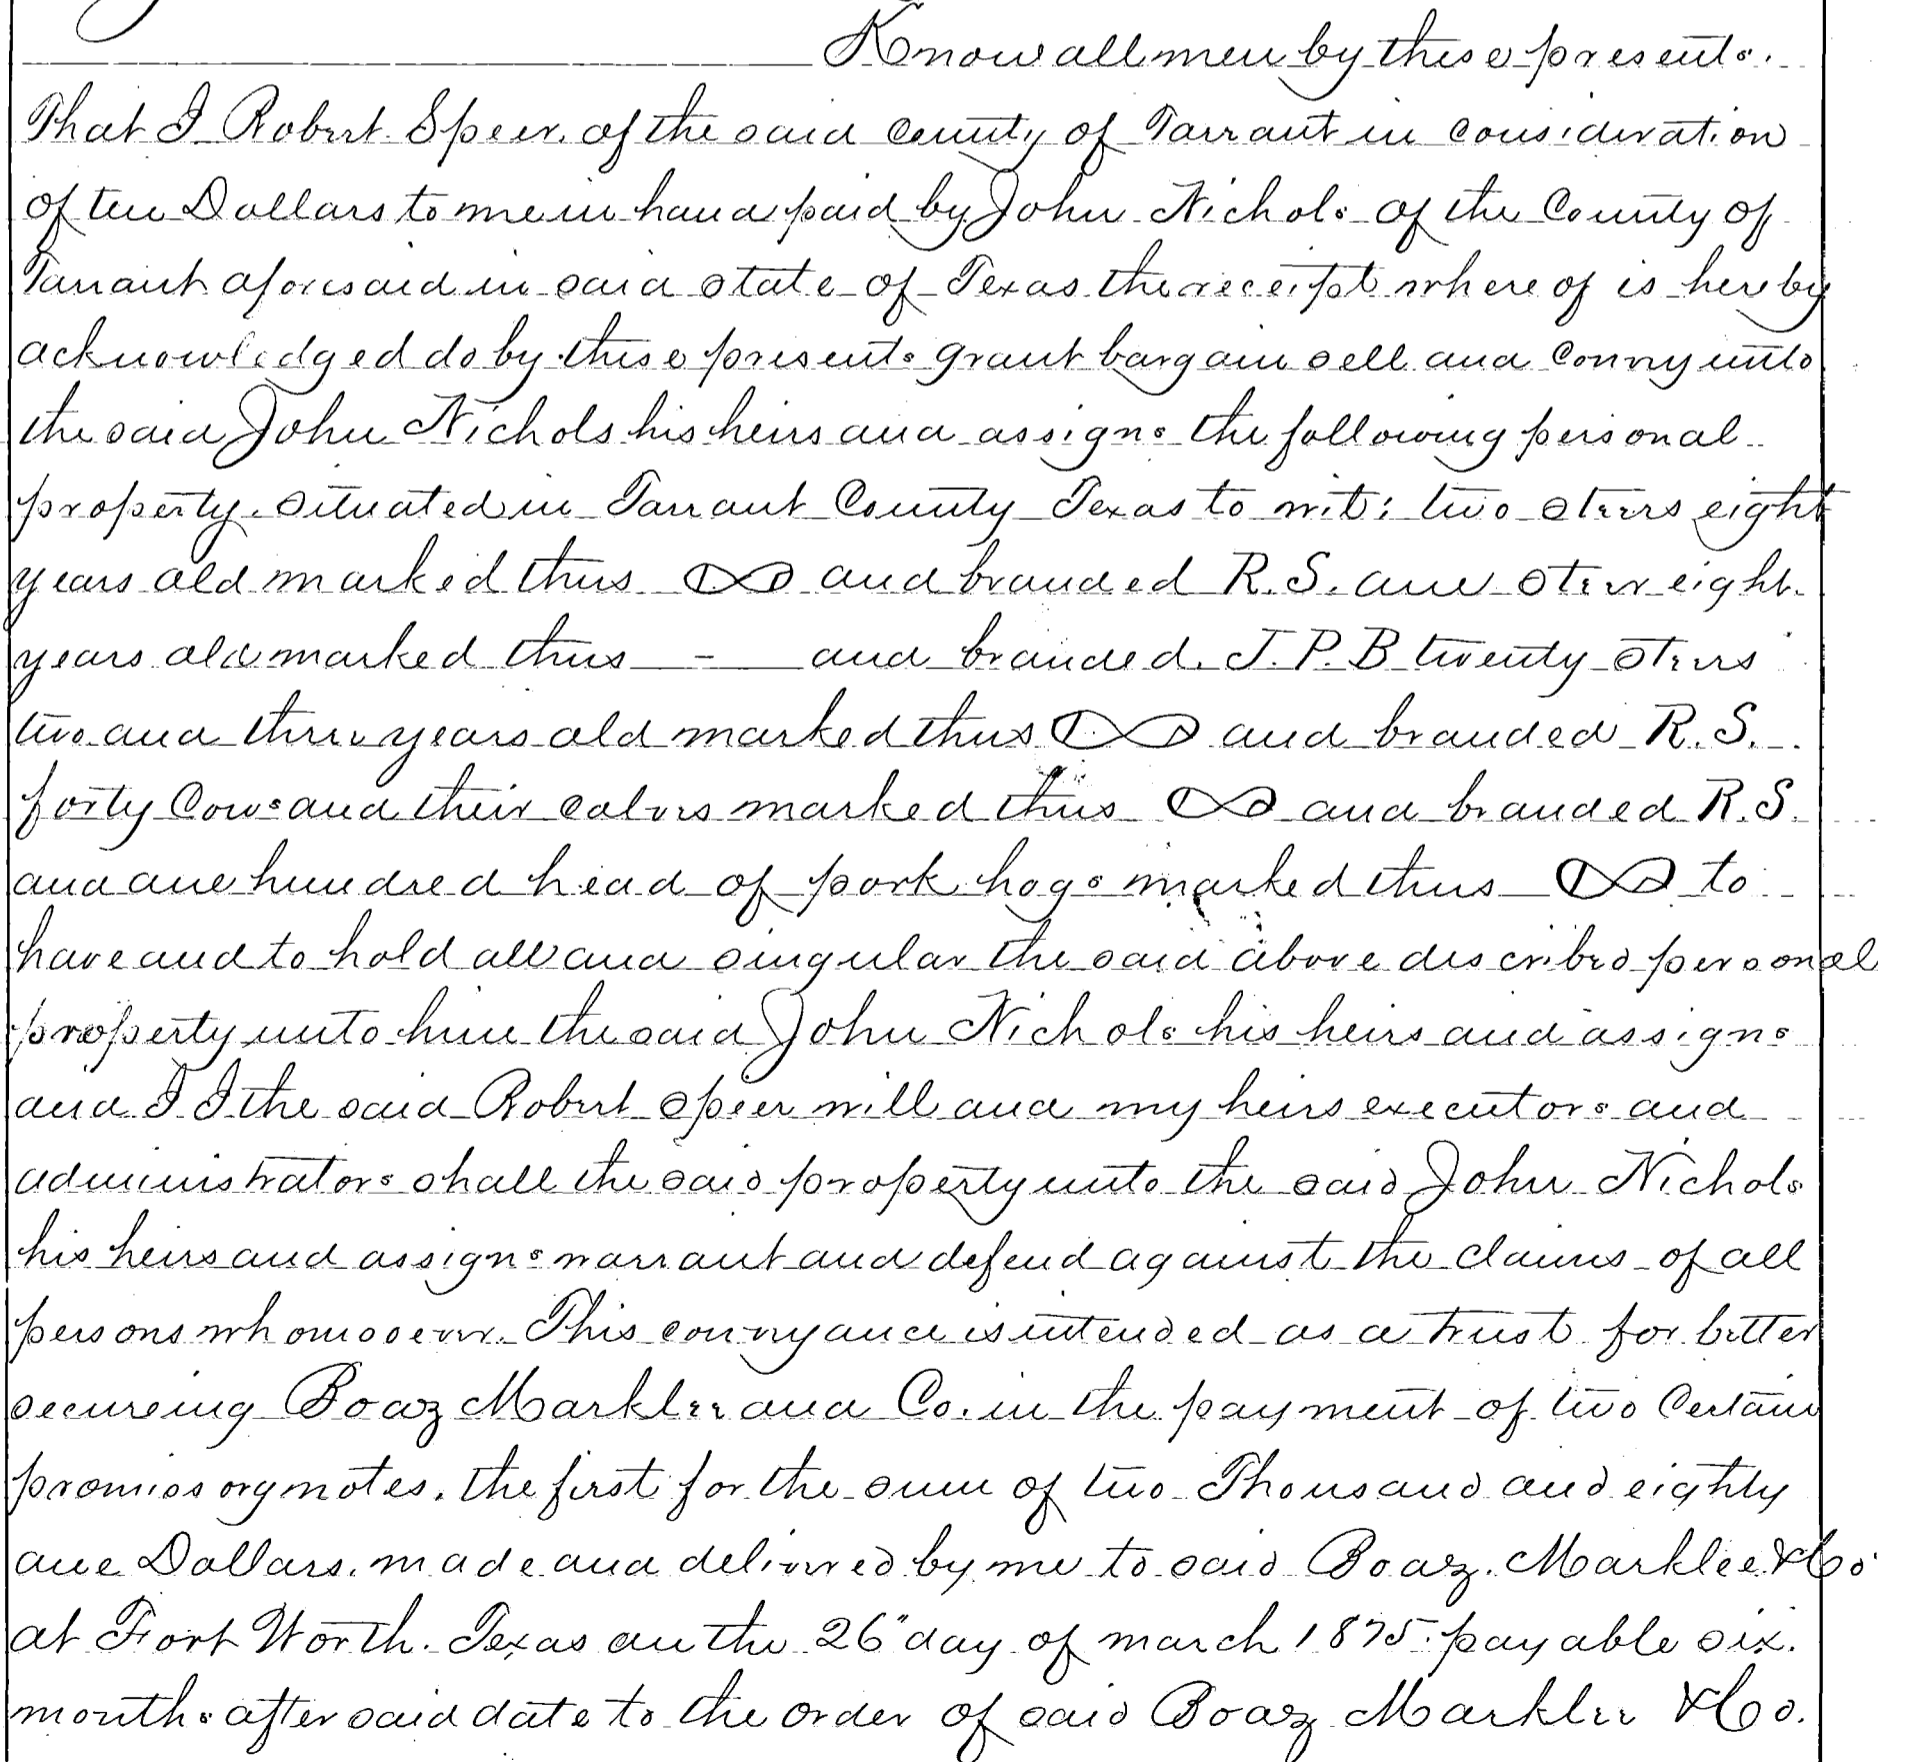 Know all men by these presents.
That I Robert Speer, of the said County of Tarrant in consideration
of ten Dollars to me in hand paid by John Nichols of the County of
Tarrant aforesaid in said state of Texas the receipt where of is hereby
acknowledged do by these presents grant bargain sell and Convey unto
the said John Nichols his heirs and assigns the following personal
property situated in Tarrant County Texas to wit: two steers eight
years old marked thus and branded R.S. one steer eight
years old marked thus - and branded J.P.B twenty steers
two and three years old marked thus and branded R.S.
forty Cows and their calves marked thus and branded R.S.
and one hundred head of pork hogs marked thus to
have and to hold all and singular the said above described personal
property unto him the said John Nichols his heirs and assigns
and I I the said Robert Speer will and my heirs executors and
administrators shall the said property unto the said John Nichols
his heirs and assigns warrant and defend against the claims of all
persons whomsoever. This conveyance is intended as a trust for better
secureing Boaz Marklee and Co. in the payment of two Certain
promissory notes. the first for the sum of two Thousand and eighty
one Dollars. made and delivered by me to said Boaz. Marklee & Co
at Fort Worth. Texas on the 26" day of march 1875. payable six.
months after said date to the order of said Boaz Marklee & Co.